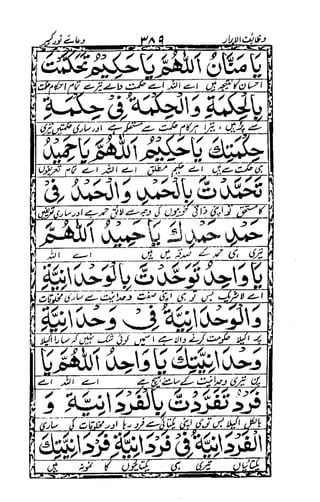 وظائف الابرار ۳۸۹ دعائے نور کبیر
یَا مَنَّانُ اَللّٰهُمَّ یَا حَکِیْمُ تَحَکَّمْتَ
احسان کا نتیجہ ہیں اے اللہ اے حکمت والے تیرے تمام احکام حکمت
بِالْحِکْمَةِ وَالْحِکْمَةُ فِیْ حِکْمَةِ
سے پُر ہیں، تیرا ہر کام حکمت سے مستحکم ہے اور ساری حکمتیں تیری
حِکْمَتِكَ یَا حَکِیْمُ اَللّٰهُمَّ یَا حَمِیْدُ
ہی حکمت سے ہیں اے حکیم مطلق اے اللہ اے تمام تعریفوں
تَحَمَّدْتَ بِالْحَمْدِ وَالْحَمْدُ فِیْ
کا مستحق تو اپنی ذاتی خوبیوں کی وجہ سے لائق حمد ہے اور ساری تعریفیں
حَمْدِ حَمْدِكَ یَا حَمِیْدُ اَللّٰهُمَّ
تیری ہی حمد کے صدقہ میں ہیں اے اللہ
یَا وَاحِدُ تَوَحَّدْتَ بِالْوَحْدَانِیَّةِ
اے لاشریک بس تو ہی اپنی صفت وحدانیت سے ساری مخلوقات
وَالْوَحْدَانِیَّةُ فِیْ وَحْدَانِیَّةِ
پر اکیلا حکومت کرنے والا ہے اسمیں کوئی شک نہیں کہ سارا اکیلا
وَحْدَانِیَّتِكَ یَا وَاحِدُ اَللّٰهُمَّ یَا
پن تیری وحدانیت کے سامنے ہیچ ہے اے اللہ اے
فَرْدُ تَفَرَّدْتَ بِالْفَرْدَانِیَّةِ وَ
بالکل اکیلا بس تو ہی اپنی یکتائی سے فرد رہا اور مخلوقات کی ساری
الْفَرْدَانِیَّةُ فِیْ فَرْدَانِیَّةِ فَرْدَانِیَّتِكَ
یکتائیاں تیری ہی یکتائیوں کا نمونہ ہیں